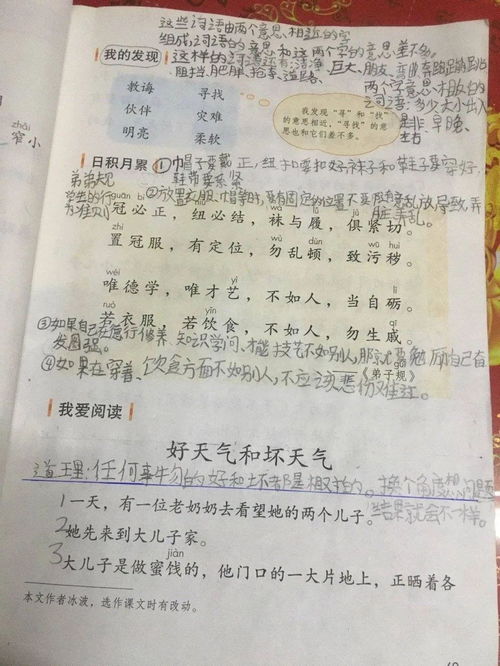 这些词语由两个意思相近的字
组成,词语的意思和这两个字的意思差不多。
我的发现 这样的词语还有:洁净、巨大、朋友、弯曲、奔跑、
阻挡、肥胖、抢夺、
两个字意思相反的
词语:多少、大小、出入
是非、早晚、
教诲 寻找
伙伴 灾难
明亮 柔软
我发现“寻”和“找”
的意思相近,“寻找”的意
思也和它们差不多。
zhǎi
窄小
日积月累 ①帽子要戴正,纽扣要扣好,袜子和鞋子要穿好,
鞋带要系紧
学生的行
为准则
②放置衣服、帽子时,要有固定的位置,不要乱放导致弄
脏弄乱。
guān bì wà lǚ jù
冠必正,纽必结,袜与履,俱紧切。
zhì wù dùn wū huì
置冠服,有定位,勿乱顿,致污秽。
wéi yì lì
唯德学,唯才艺,不如人,当自砺。
ruò yǐn qī
若衣服,若饮食,不如人,勿生戚。
《弟子规》
③如果自己在德行修养、知识学问、才能技艺不如别人,那就要勉励自己奋
发图强。
④如果在穿着、饮食方面不如别人,不应该悲伤难过。
我爱阅读
好天气和坏天气
道理:任何事物的好和坏都是相对的。换个角度想问题
结果就会不一样。
1一天,有一位老奶奶去看望她的两个儿子。
2她先来到大儿子家。
jiàn
3大儿子是做蜜饯的,他门口的一大片地上,正晒着各
本文作者冰波,选作课文时有改动。